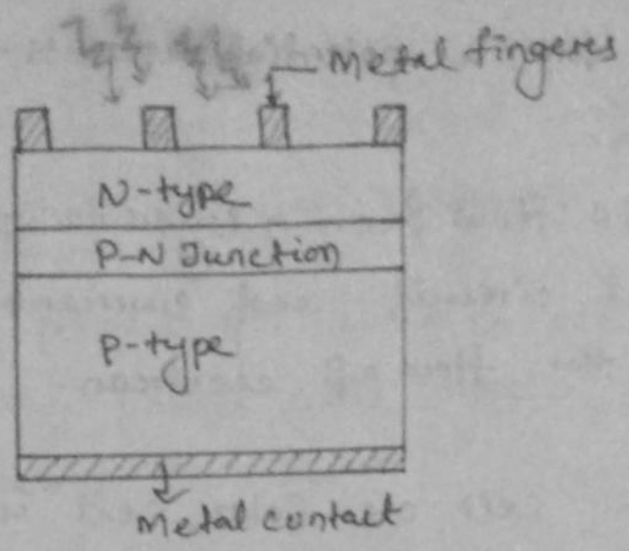 Metal fingeres
N-type
P-N Junction
P-type
Metal contact